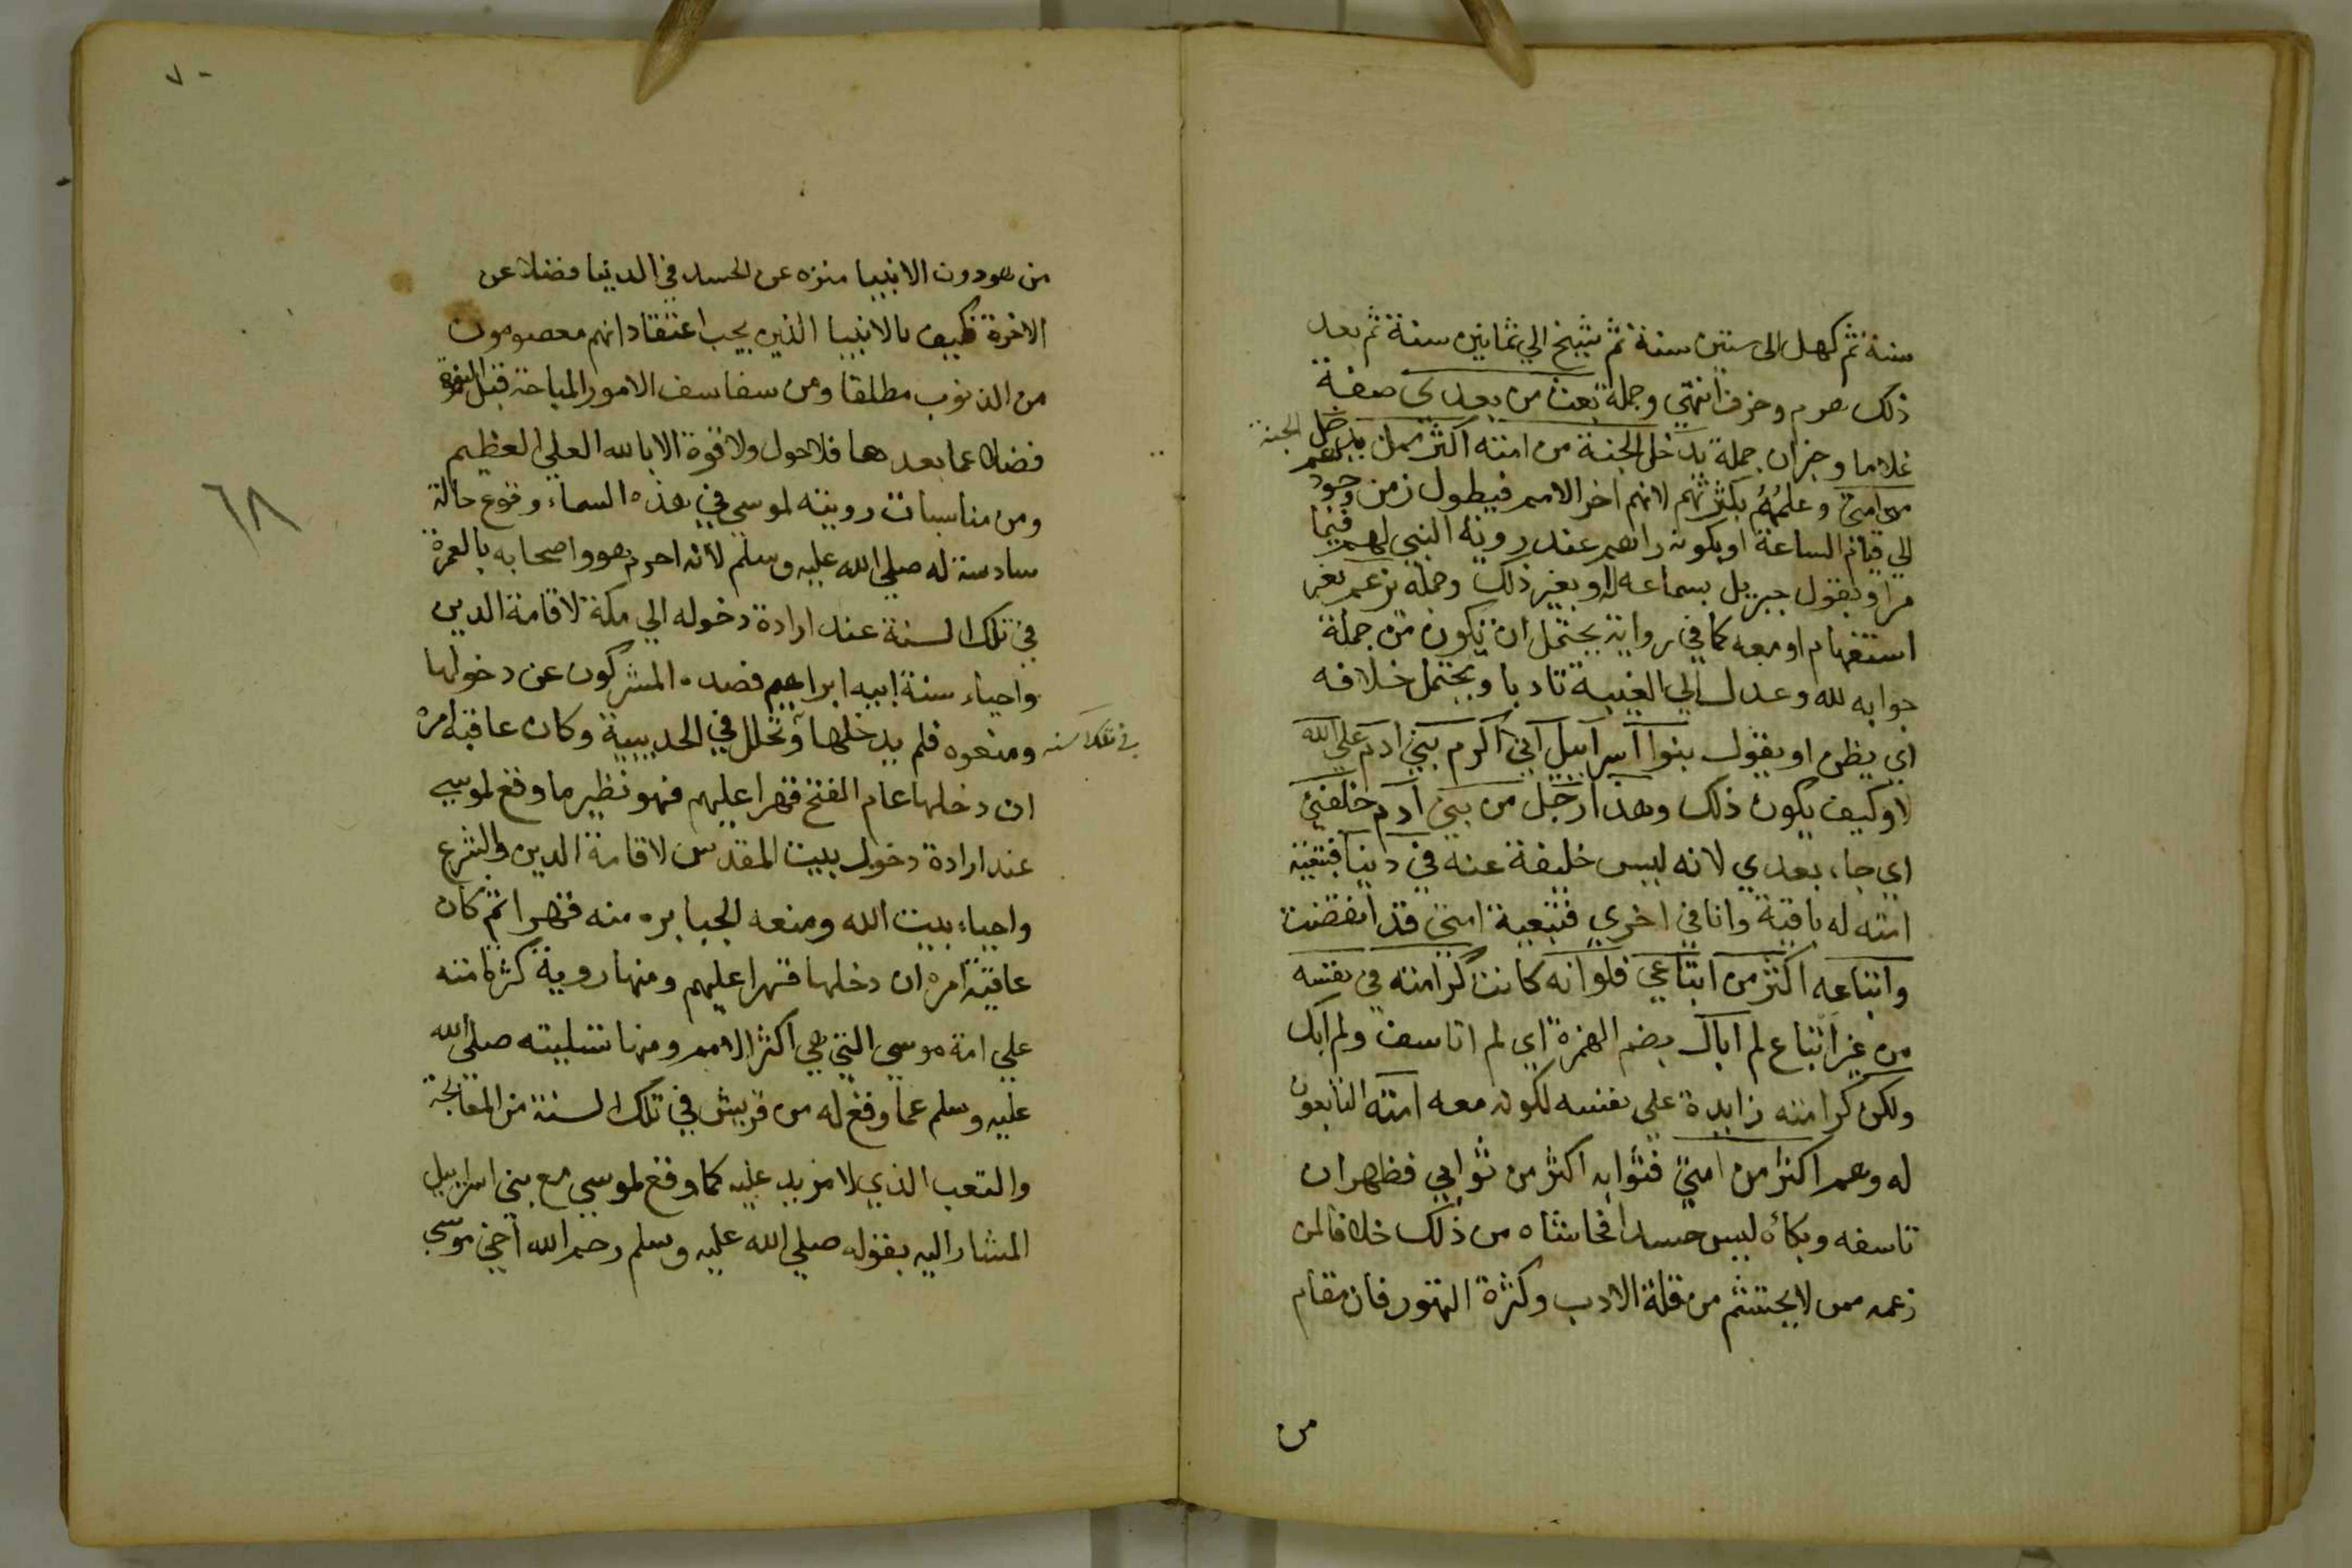 سنة ثم كهل الى ستين سنة ثم شيخ الي ثمانين سنة ثم بعد
ذلك هرم وخرف انتهي وجملة بعث من بعدي صفة
غلاما وخبران جملة يدخل الجنة من امته اكثر ممن يدخل الجنة
من امتي وعلمُهُ بكثرتهم لانهم اخر الامم فيطول زمن وجودهم
الي قيام الساعة او بكونه راهم عند روية النبي لهم فيما
مر او بقول جبريل بسماعه له او بغير ذلك وجملة تزعم بغير
استفهام او معه كما في رواية يحتمل ان تكون من جملة
جوابه لله وعدل الي الغيبة تادبا ويحتمل خلافه
اي يظن او يقول بنوا اسرائيل اني اكرم بني ادم علي الله
او كيف يكون ذلك وهذا رجل من بني آدم خلفني
اي جاء بعدي لانه ليس خليفة عنه في دنيا فتبعية
امته له باقية وانا في اخري فتبعية امتي قد انقضت
واتباعه اكثر من اتباعي فلو انه كانت كرامته في نفسه
من غير اتباع لم اباك بضم الهمزة اي لم اتاسف ولم ابك
ولكن كرامته زايدة علي نفسه لكونه معه امته التابعون
له وهم اكثر من امتي فثوابه اكثر من ثوابي فظهر ان
تاسفه وبكاه ليس حسدا فحاشاه من ذلك خلافا لمن
زعمه ممن لا يحتشم من قلة الادب وكثرة التهور فان مقام
من
٧٠
من هو دون الانبيا منزه عن الحسد في الدنيا فضلا عن
الاخرة فكيف بالانبيا الذين يجب اعتقاد انهم معصومون
من الذنوب مطلقا ومن سفاسف الامور المباحة قبل النبوة
فضلا عما بعدها فلا حول ولا قوة الا بالله العلي العظيم
ومن مناسبات رويته لموسي في هذه السماء وقوع حالة
سادسة له صلي الله عليه وسلم لانه احرم هو واصحابه بالعمرة
في تلك السنة عند ارادة دخوله الي مكة لاقامة الدين
واحياء سنة ابيه ابراهيم فصده المشركون عن دخولها
ومنعوه فلم يدخلها وتحلل في الحديبية وكان عاقبة امره
في تلك السنه
ان دخلها عام الفتح قهرا عليهم فهو نظير ما وقع لموسي
عند ارادة دخول بيت المقدس لاقامة الدين والشرع
واحياء بيت الله ومنعه الجبابره منه قهرا ثم كان
عاقبة امره ان دخلها قهرا عليهم ومنها روية كثرة امته
علي امة موسي التي هي اكثر الامم ومنها تسليته صلي الله
عليه وسلم عما وقع له من قريش في تلك السنة من المعالجة
والتعب الذي لا مزيد عليه كما وقع لموسي مع بني اسراييل
المشار اليه بقوله صلي الله عليه وسلم رحم الله أخي موسي
٦٨